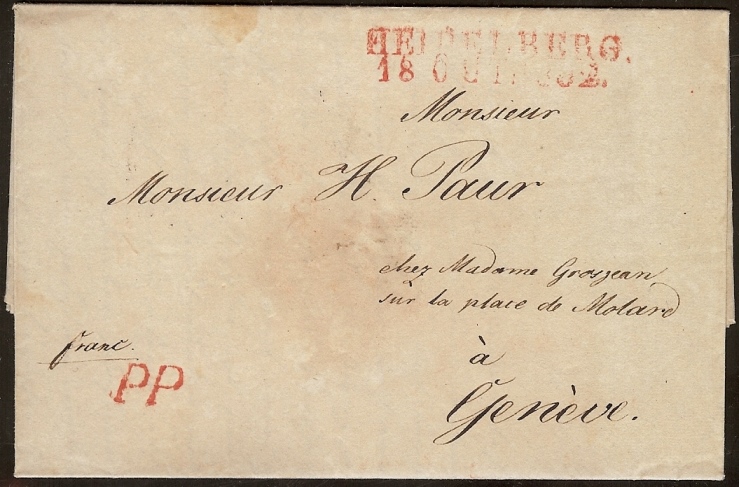 HEIDELBERG.
18 OCT 1832.
Monsieur
Monsieur H. Paur
chez Madame Grosjean
sur la place de Molard
à
Genève.
franc.
PP